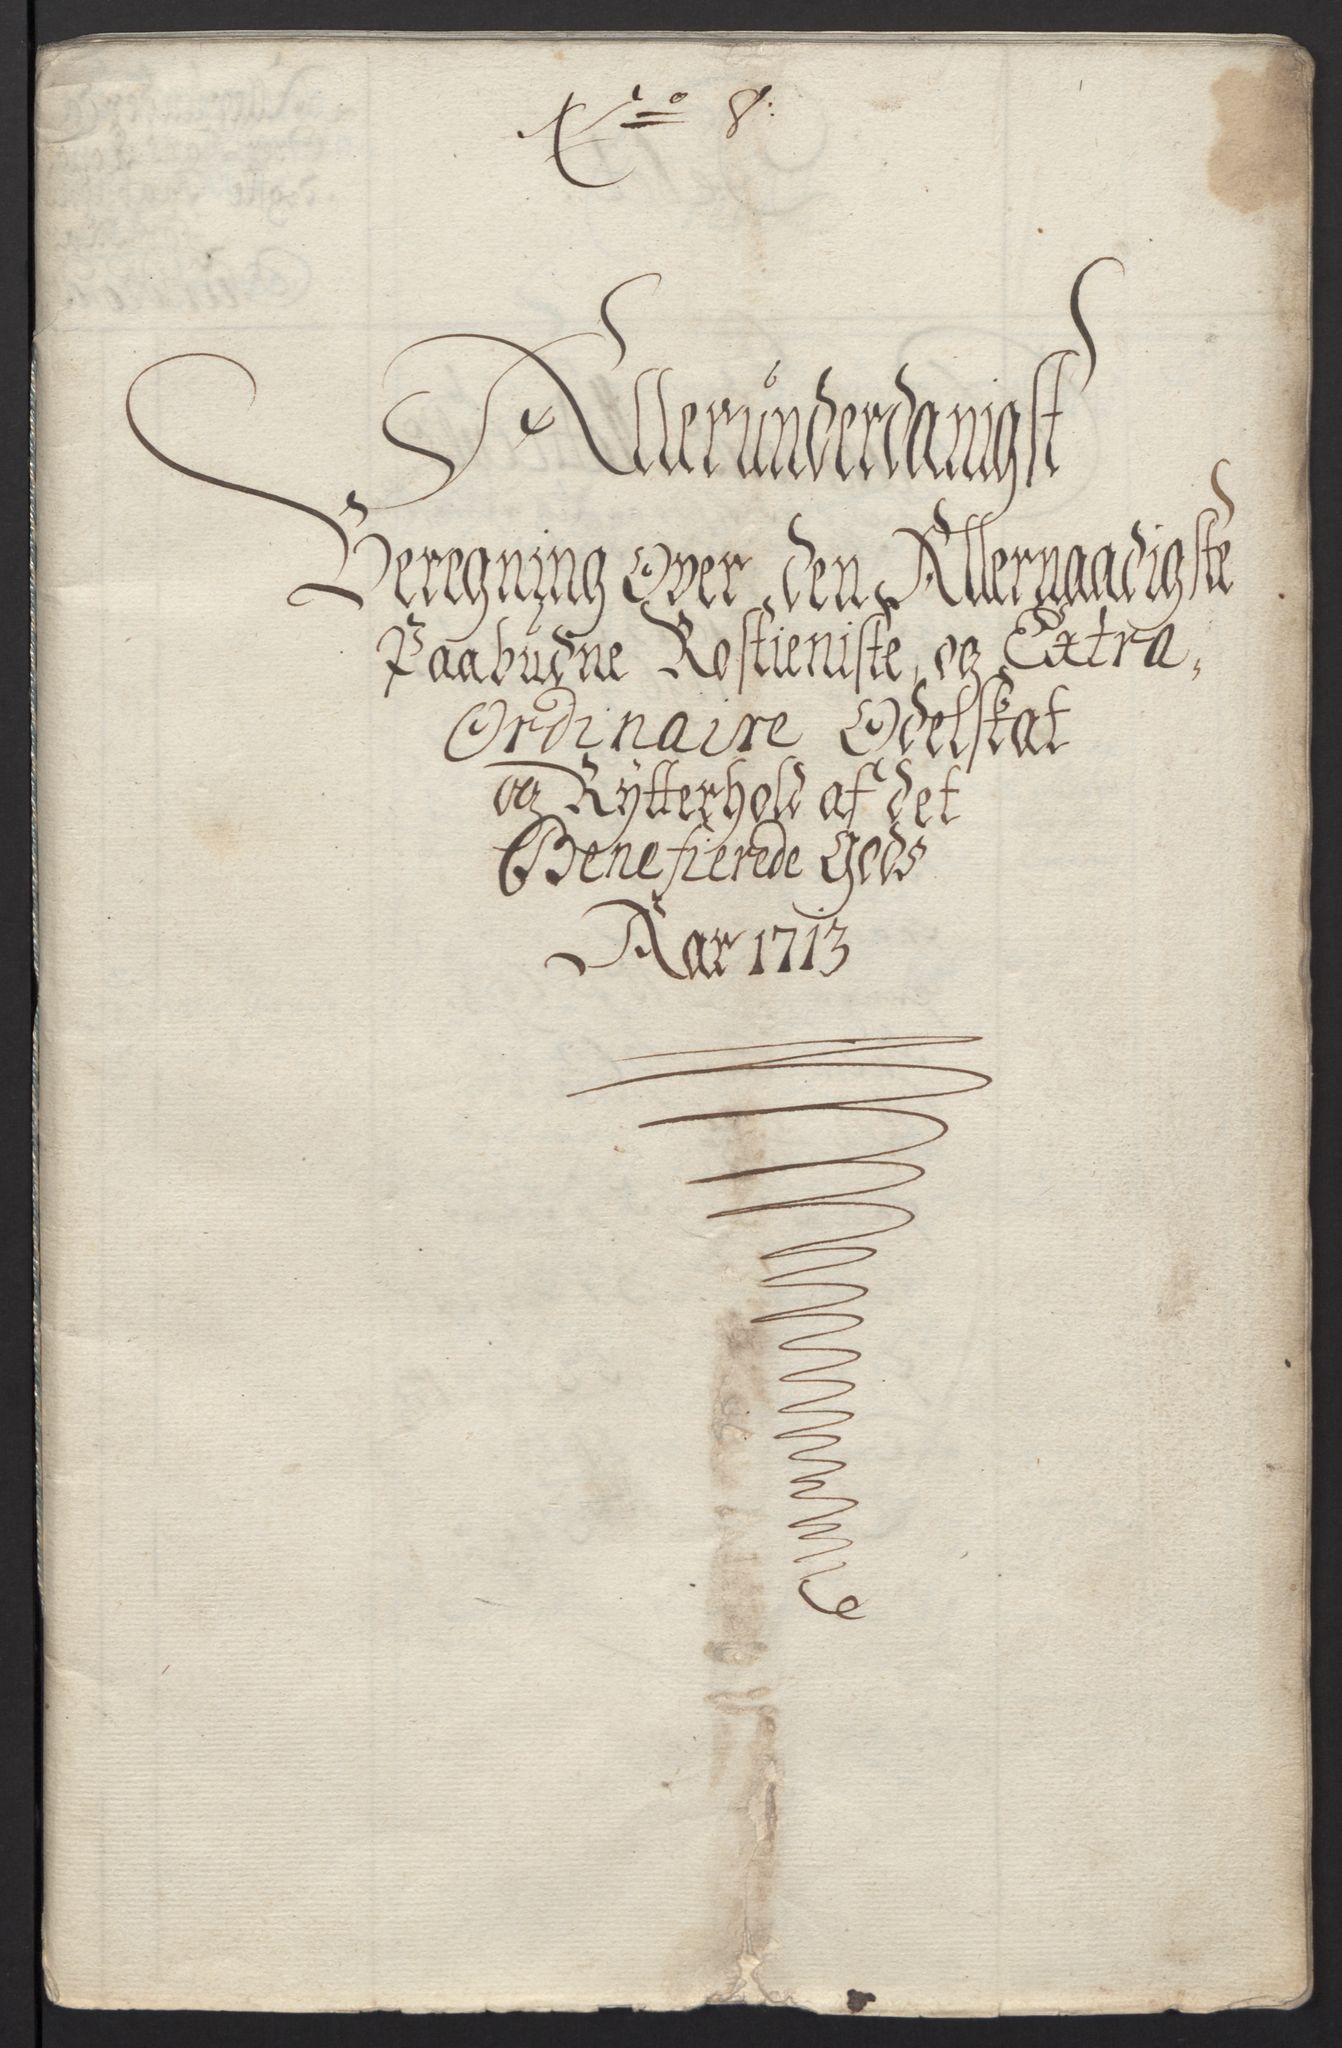 No 8:
Allerunderdanigst
Beregning Over den Allernaadigste
Paabudne Rostieniste, og Extra,
Ordinaire Odelskat
og Rytterhold af det
Benefierede Gods
Aar 1713